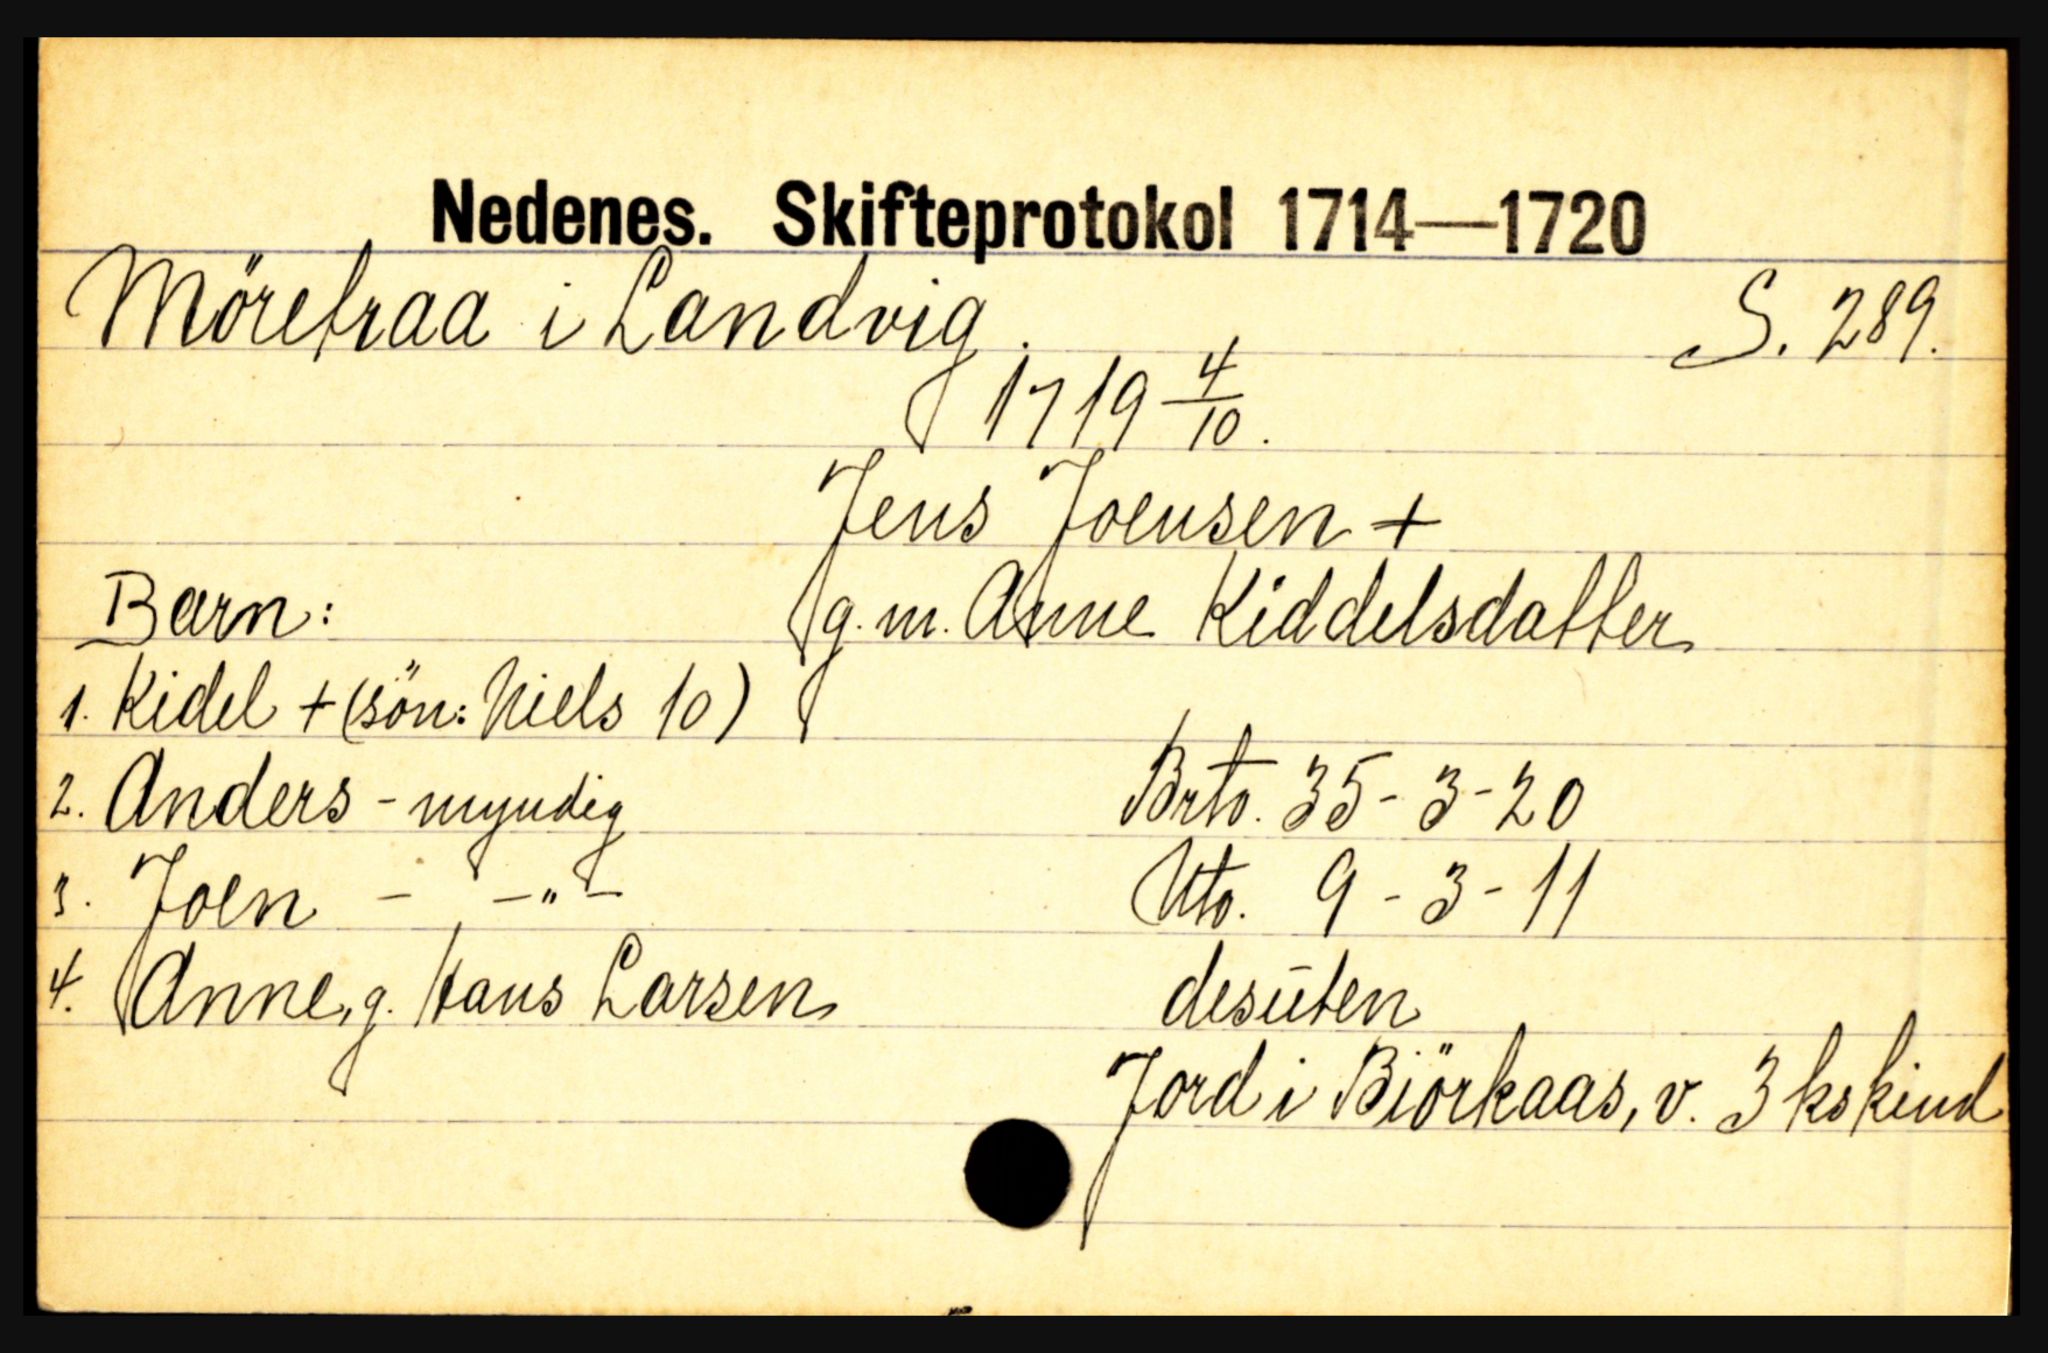 Nedenes. Skifteprotokol 1714—1720
Mörefraa i Landvig. S. 289.
1719 4/10.
Jens Joensen +
g. m. Anne Kiddelsdatter
Barn:
1. Kidel + (sön: Niels 10)
2. Anders - myndig
3. Joen - -"-
4. Anne, g. Hans Larsen
Brto. 35 - 3 - 20
Nto. 9 - 3 - 11
desuten
Jord i Biörkaas, v. 3 kskind